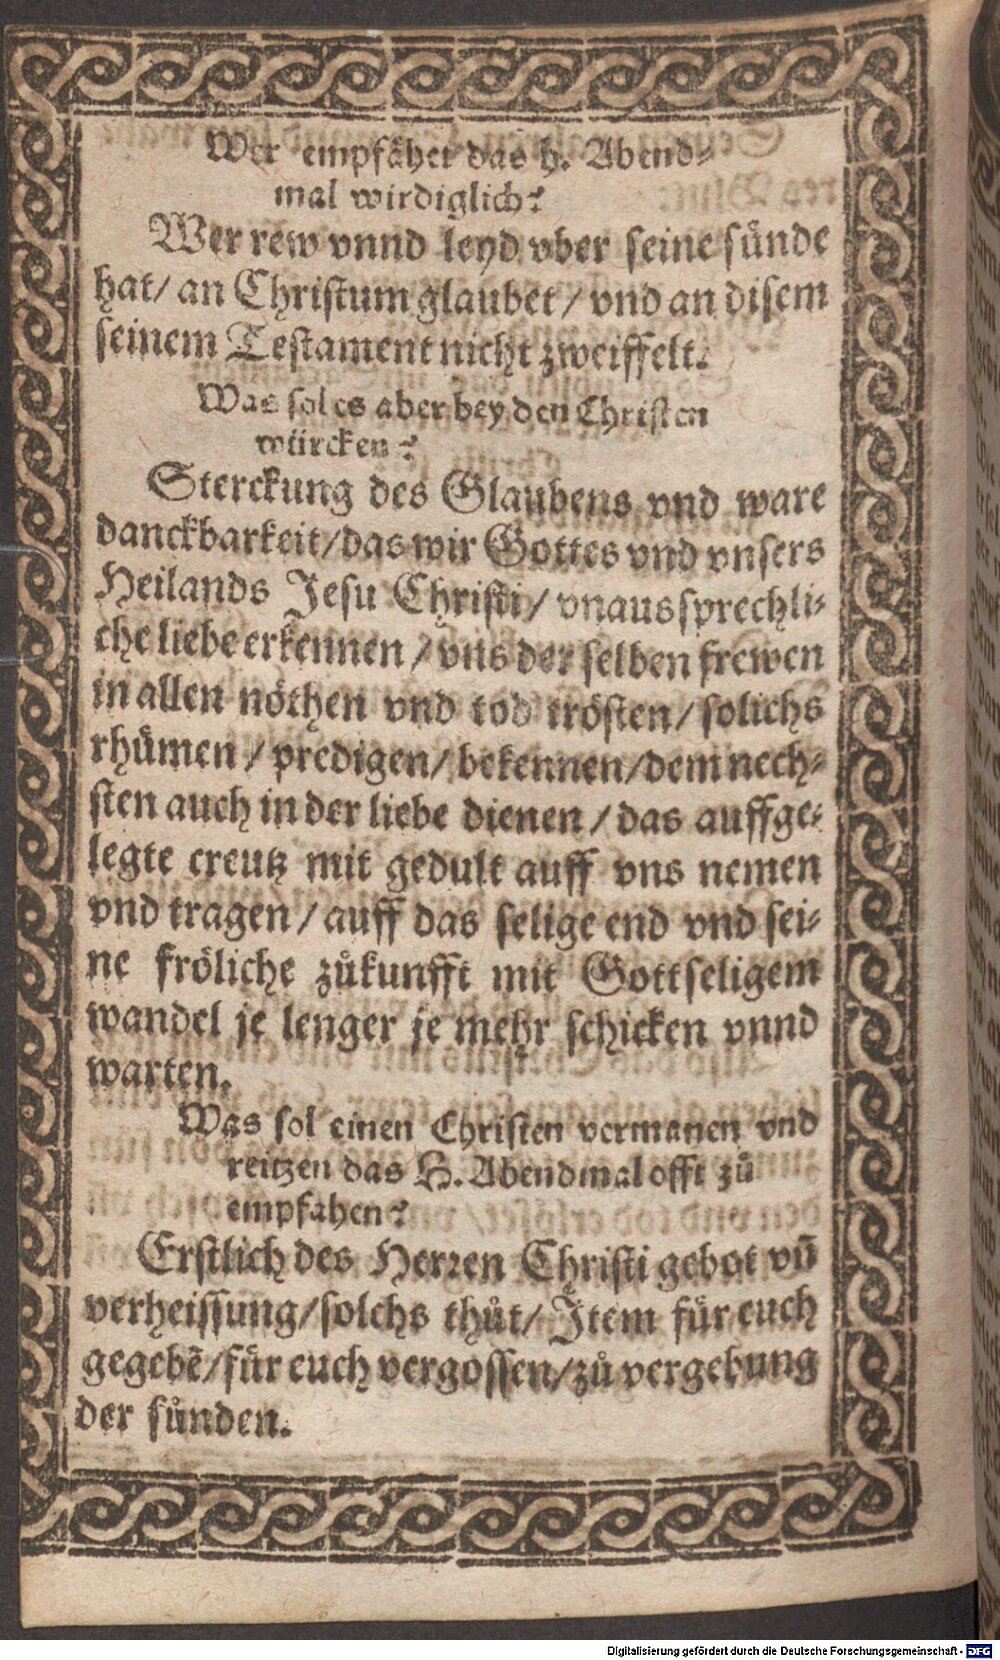 Wer empfähet das h. Abend-
mal wirdiglich?
Wer rew vnnd leyd vber seine sünde
hat/ an Christum glaubet/ vnd an disem
seinem Testament nicht zweiffelt.
Was sol es aber bey den Christen
würcken?
Sterckung des Glaubens vnd ware
danckbarkeit/das wir Gottes vnd vnsers
Heilands Jesu Christi/ vnaussprechli-
che liebe erkennen/ vns der selben frewen
in allen nöthen vnd tod trösten/ solichs
rhümen/ predigen/ bekennen/dem nech-
sten auch in der liebe dienen/ das auffge-
legte creutz mit gedult auff vns nemen
vnd tragen/ auff das selige end vnd sei-
ne fröliche zůkunfft mit Gottseligem
wandel je lenger je mehr schicken vnnd
warten.
Was sol einen Christen vermanen vnd
reitzen das H. Abendmal offt zů
empfahen?
Erstlich des Herren Christi gebot vñ
verheissung/solchs thůt/ Item für euch
gegebẽ/für euch vergossen/zů vergebung
der sünden.
Digitalisierung gefördert durch die Deutsche Forschungsgemeinschaft - DFG